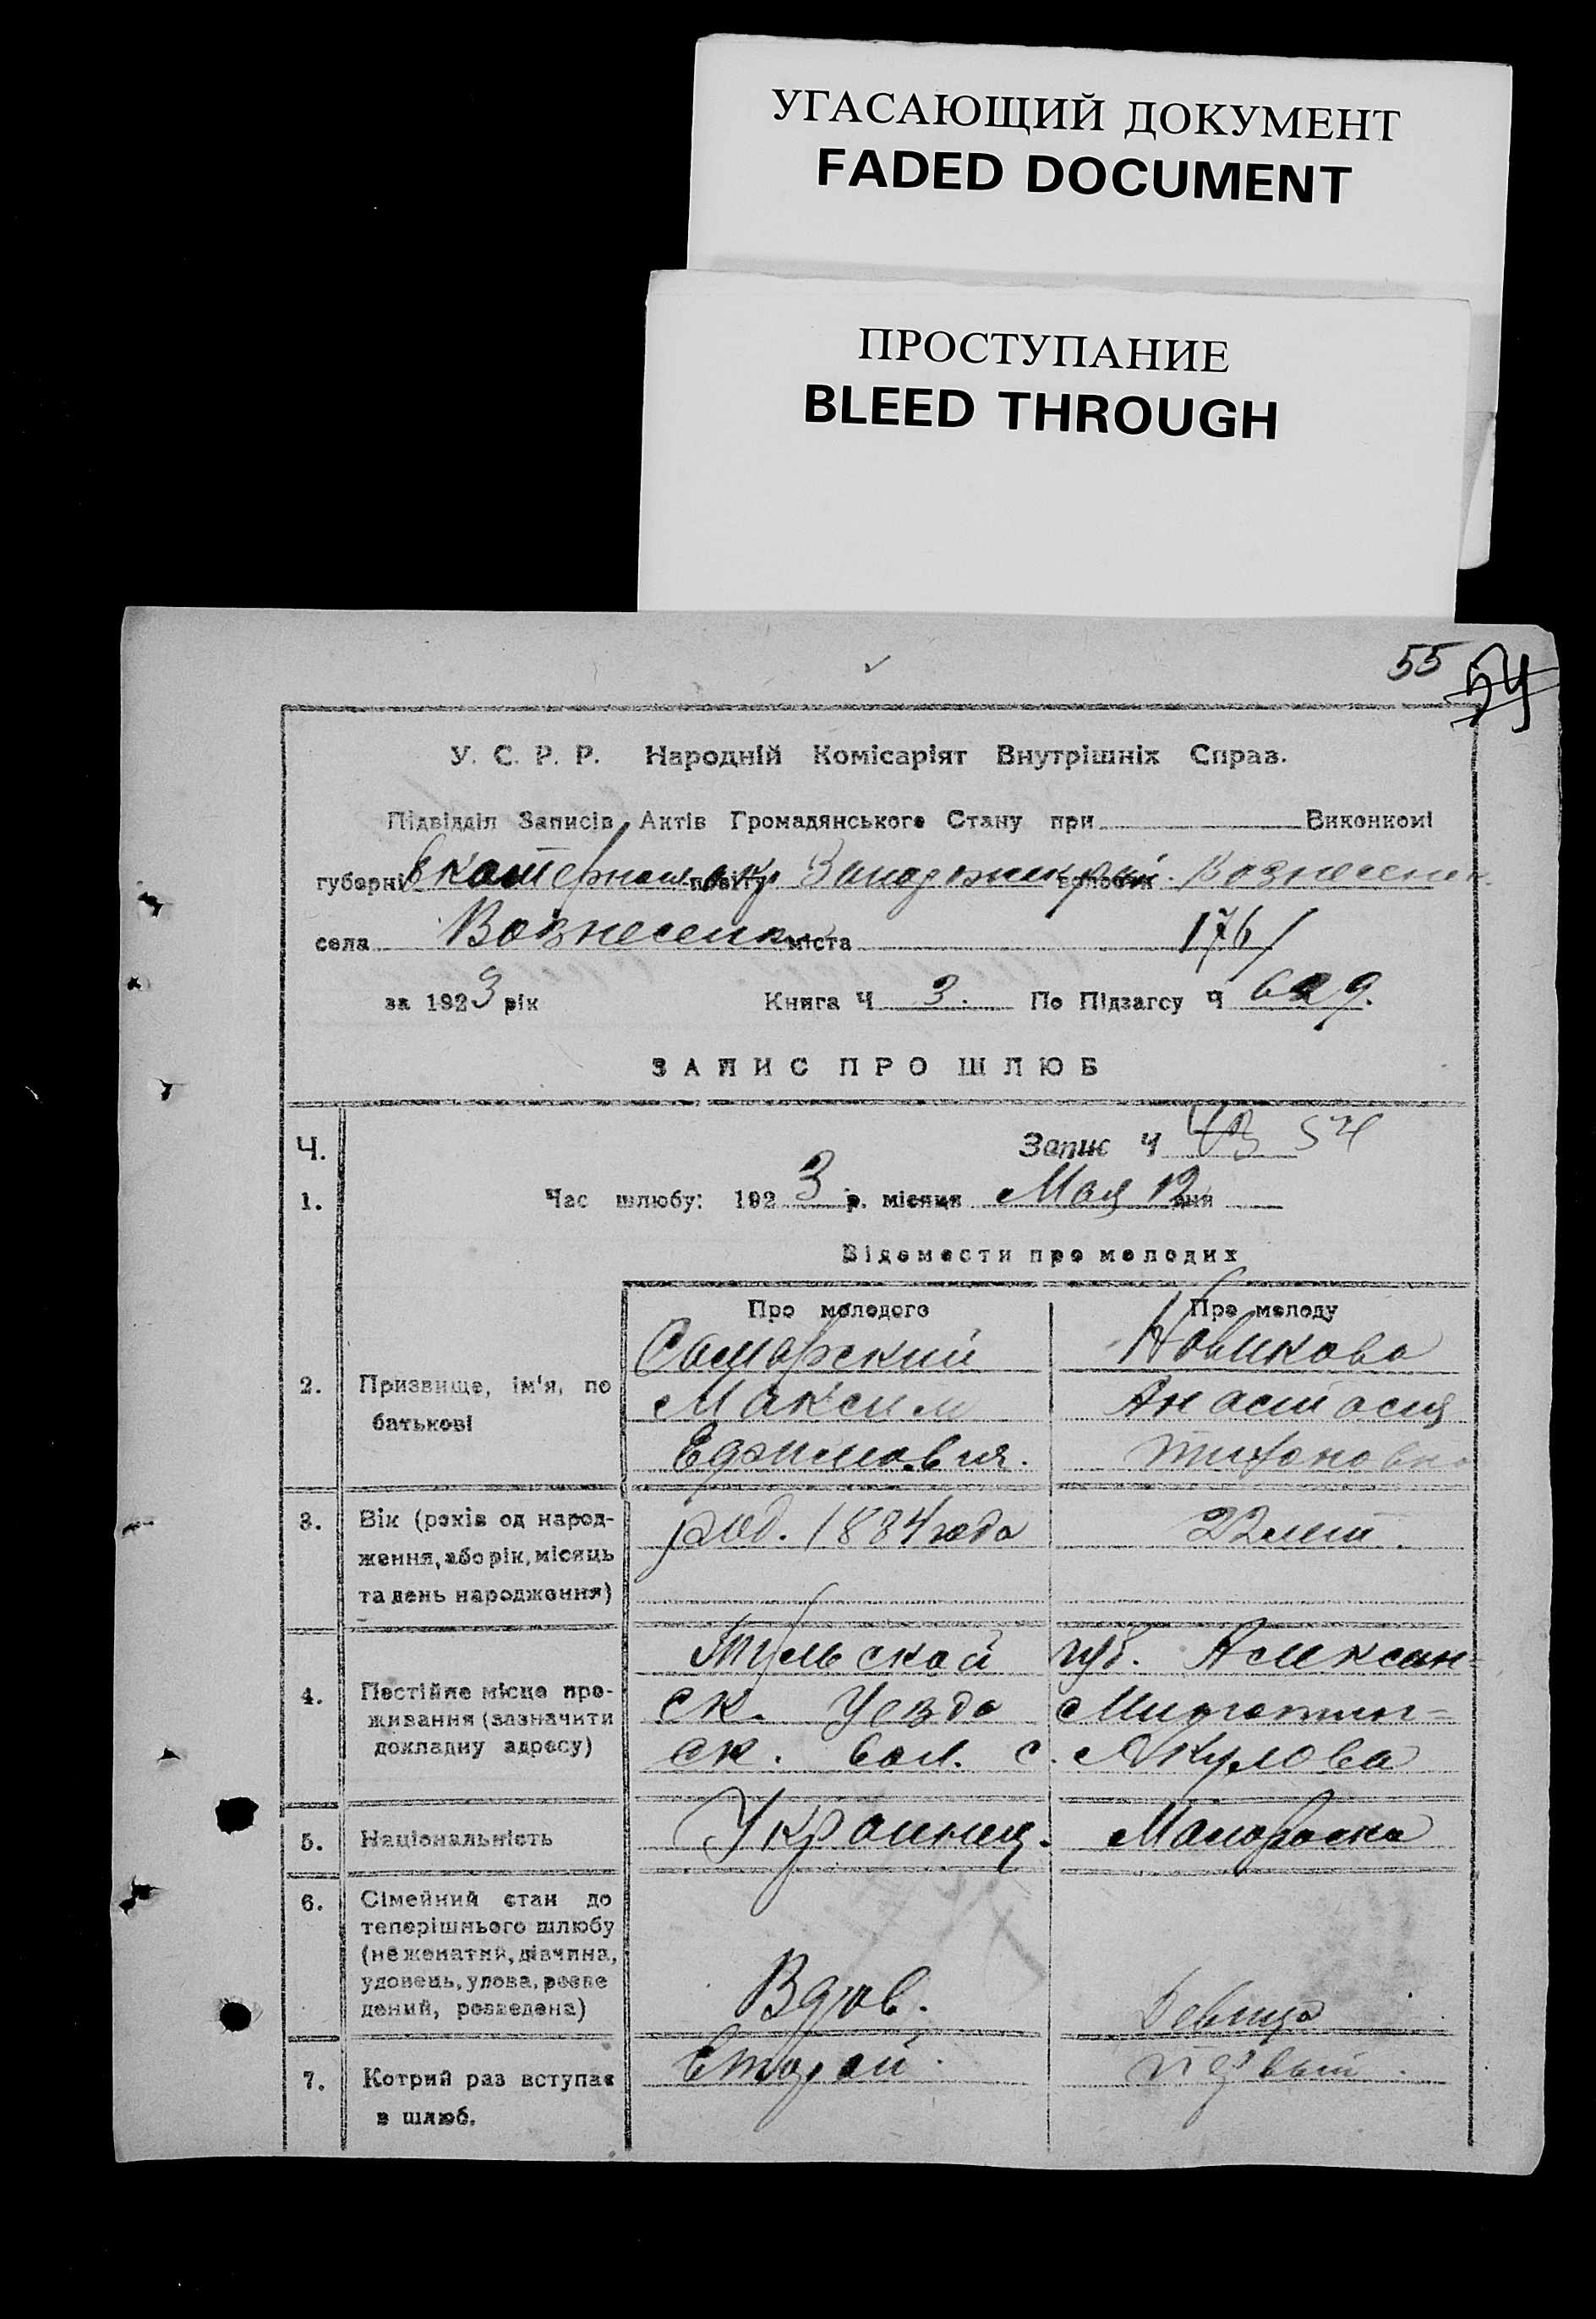 УГАСАЮЩИЙ ДОКУМЕНТ
FADED DOCUMENT
ПРОСТУПАНИЕ
BLEED THROUGH
55 54
У. С. Р. Р. Народній Комісаріят Внутрішніх Справ.
Підвідділ Записів Актів Громадянського Стану при Виконкомі
губерні повіту волости Вознесенск.
села Вознесенка міста 176
за 1923 рік Книга Ч 3. По Підзагсу Ч 629.
ЗАПИС ПРО ШЛЮБ
Ч. Запис Ч 54
1. Час шлюбу: 1923 р. місяця Мая 12 дня
Відомости про молодих
Про молодого Про молоду
Самарский Новикова
2. Призвище, ім'я, по батькові
Максим Анастасия
Ефимович. Тихоновна
3. Вік (років од народження, або рік, місяць та день народження)
род. 1884 года 22 лет.
Тульской губ. Алексин-
4. Постійне місце проживання (зазначити докладну адресу)
ск. Уезда
ск. вол. с. Акулова
5. Національність Украинец. Малороска
6. Сімейний стан до
теперішнього шлюбу
(не женатий, дівчина,
удовець, удова, розве
дений, розведена)
Вдов. Девица
7. Котрий раз вступає
в шлюб.
Второй. Первый.